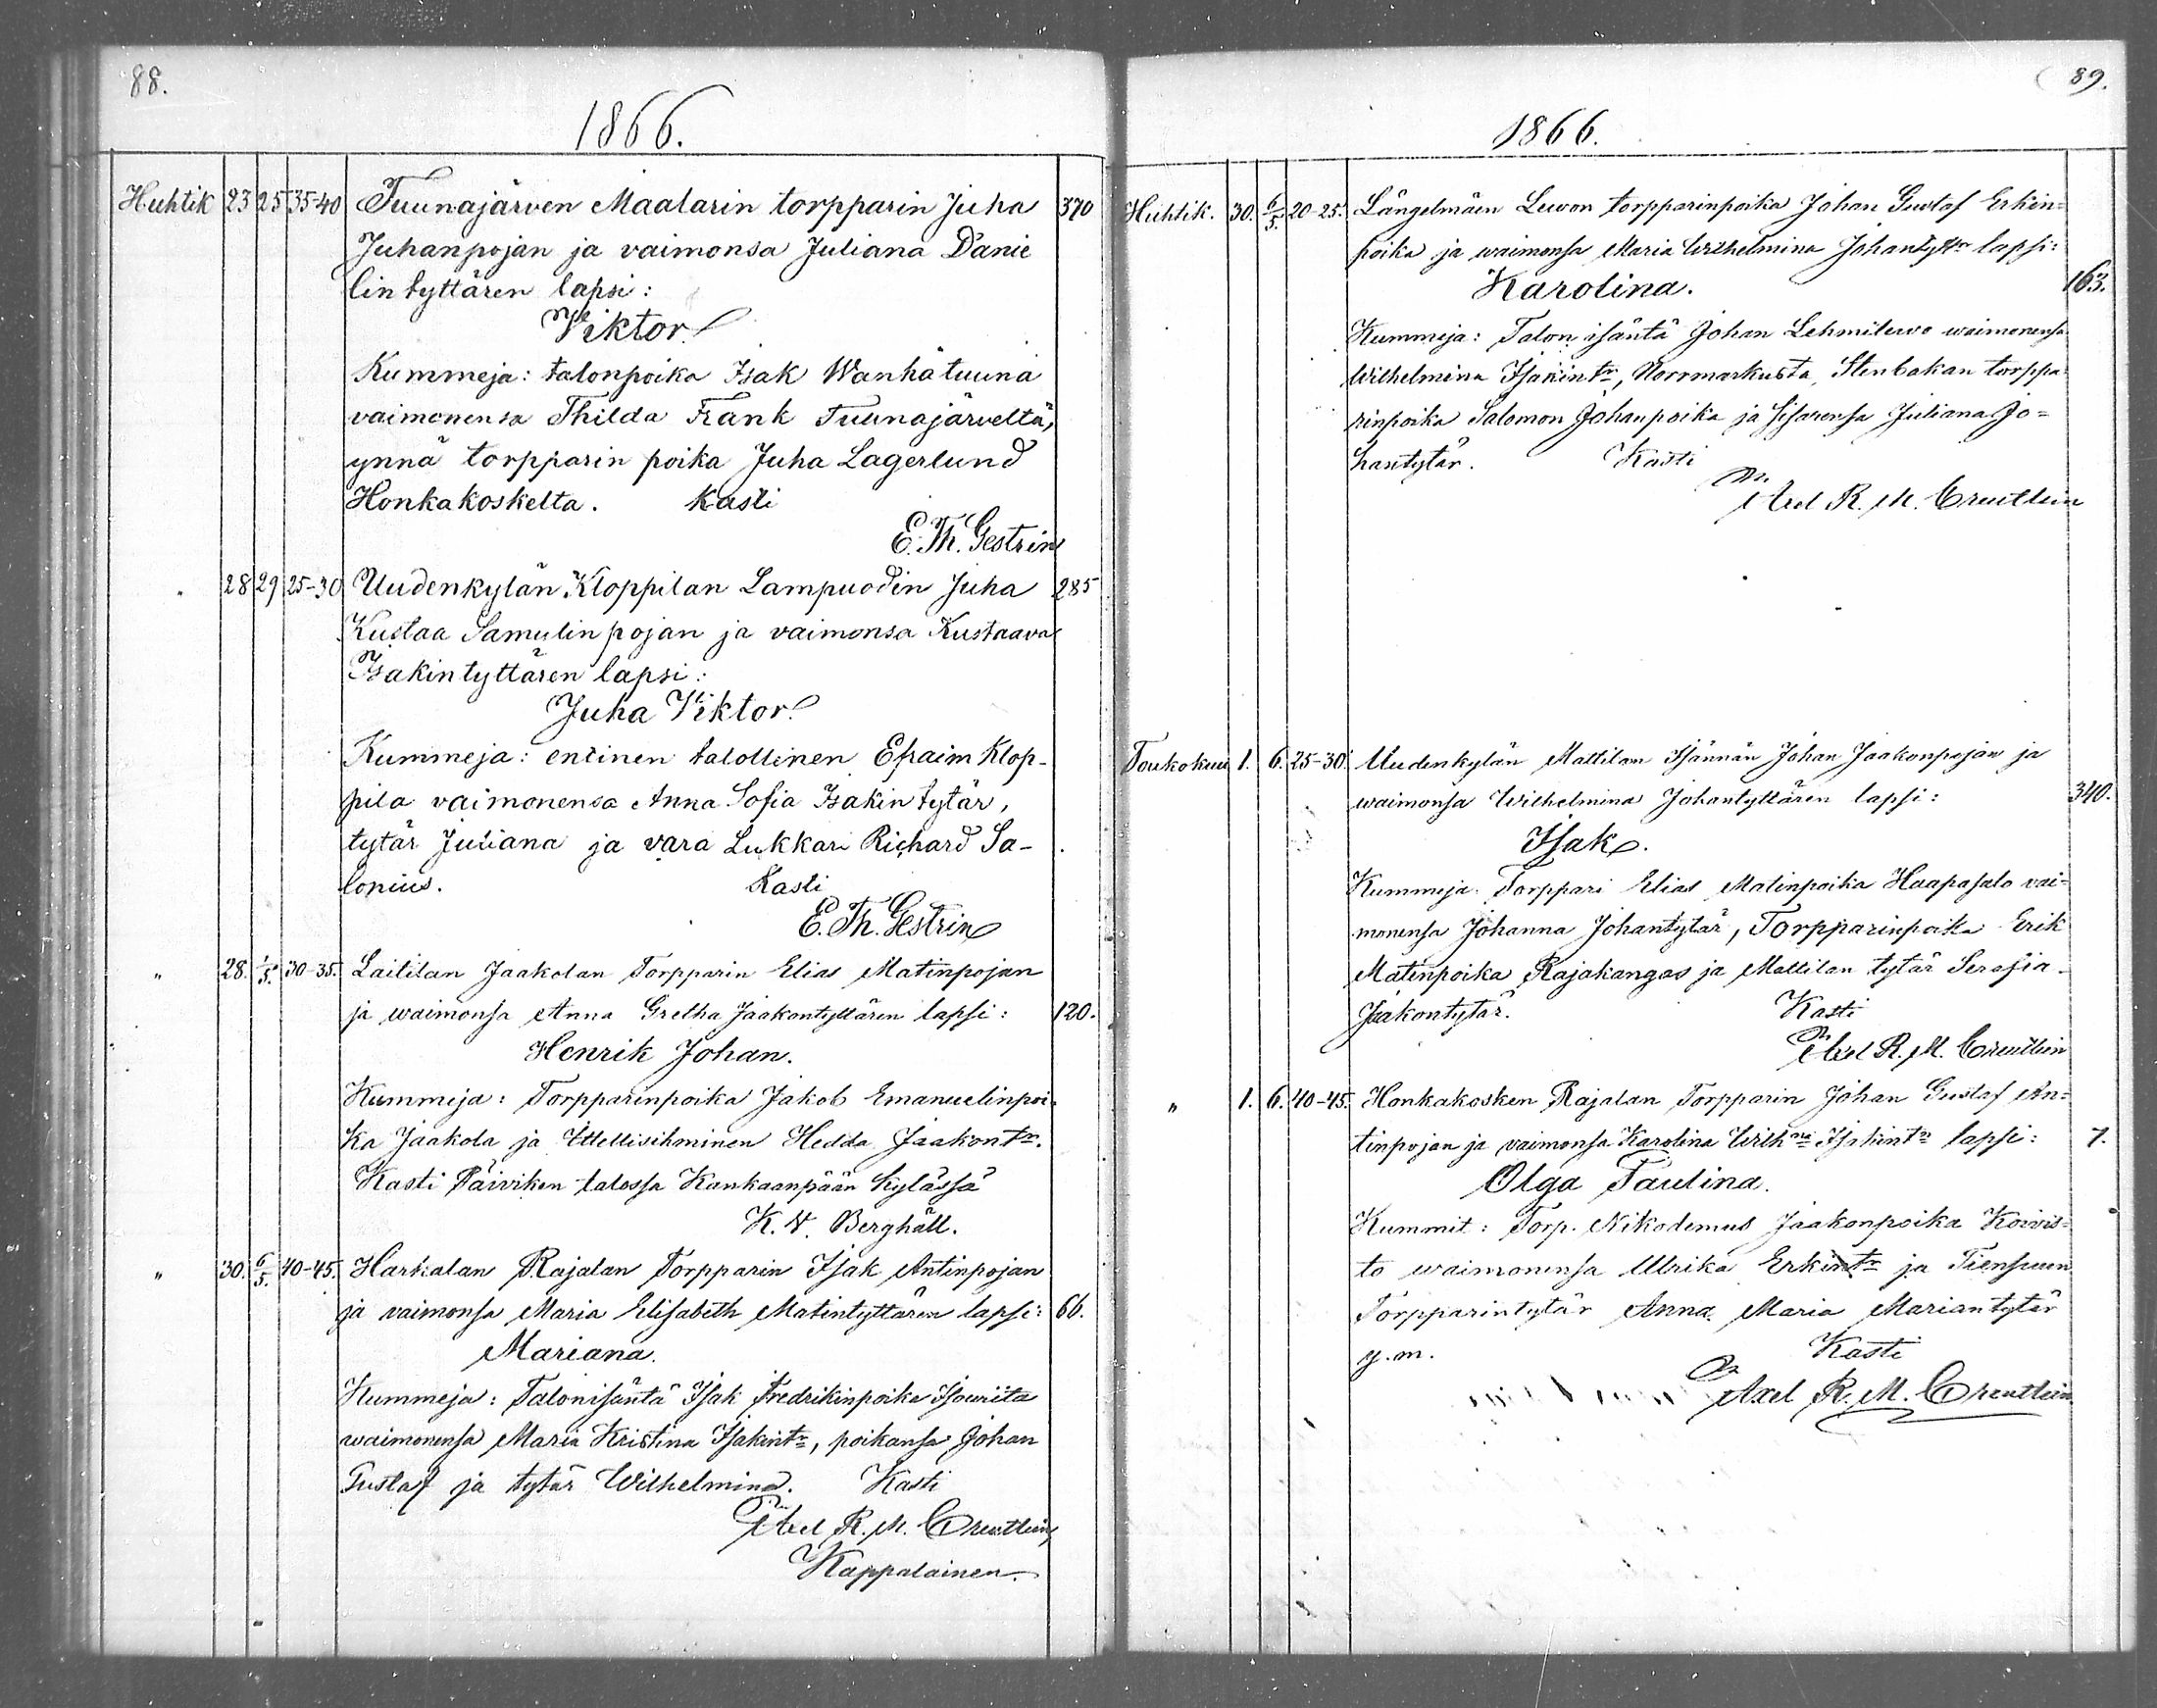 88.
1866.
Huhtik 23 25 35-40 Tuunajärven Maalarin torpparin Juha 370
Juhanpojan ja vaimonsa Juliana Danie
lin tyttären lapsi:
Viktor
Kummeja: talonpoika Isak Wanhatuuna
vaimonensa Thilda Frank Tuunajärveltä,
ynnä torpparin poika Juha Lagerlund
Honkakoskelta. Kasti
E. Th. Gestrin
" 28 29 25-30 Uudenkylän Kloppilan Lampuodin Juha 285
Kustaa Samulin pojan ja vaimonsa Kustaava
Isakin tyttären lapsi:
Juha Viktor
Kummeja: entinen talollinen Efraim Klop-
pila vaimonensa Anna Sofia Isakin tytär,
tytär Juliana ja vara Lukkari Richard Sa-
lonius. Kasti
E. Th. Gestrin
" 28. 1/5. 30-35. Laililan Jaakolan Torpparin Elias Matinpojan
ja waimonsa Anna Gretha Jaakontyttären lapsi: 120.
Henrik Johan.
Kummeja: Torpparinpoika Jakob Emanuelinpoi-
ka Jaakola ja Ittellisihminen Hedda Jaakontr.
Kasti Päiviken talossa Kankaanpään kylässä
K. H. Berghäll.
" 30. 6/5. 40-45. Harkalan Rajalan Torpparin Isak Antinpojan
ja vaimonsa Maria Elisabeth Matintyttären lapsi: 66.
Mariana.
Kummeja: Talonisäntä Isak Fredrikinpoika Isouriita
waimonensa Maria Kristina Isakintr, poikansa Johan
Gustaf ja tytär Wilhelmina. Kasti
Axel R. M. Creutlein
Kappalainen.
89.
1866.
Huhtik. 30. 6/5. 20-25. Längelmäen Lewon torpparinpoika Johan Gustaf Erkin-
poika ja waimonsa Maria Wilhelmina Johantyttr lapsi:
Karolina. 163.
Kummeja: Talon isäntä Johan Lehmilewo waimonensa
Wilhelmina Isakintr, Norrmarkusta, Stenbakan torppa-
rinpoika Salomon Johanpoika ja sisarensa Juliana Jo=
hantytär. Kasti
Axel R. M. Creutlein
Toukokuu 1. 6. 25-30. Uudenkylän Mattilan Isännän Johan Jaakonpojan ja
waimonsa Wilhelmina Johantyttären lapsi: 340.
Isak.
Kummeja. Torppari Elias Matinpoika Haapasalo vai=
monensa Johanna Johantytär, Torpparinpoika Erik
Matinpoika Rajakangas ja Mattilan tytär Serafia
Jaakontytär. Kasti
Axel R. M. Creutlein
" 1. 6. 40-45. Honkakosken Rajalan Torpparin Johan Gustaf An=
tinpojan ja vaimonsa Karolina Wilhna Isakintr lapsi: 7.
Olga Paulina.
Kummit: Torp. Nikodemus Jaakonpoika Koivis=
to waimonensa Ulrika Erkintr ja Tiensuun
Torpparintytär Anna Maria Mariantytär
y.m. Kasti
Axel R. M. Creutlein